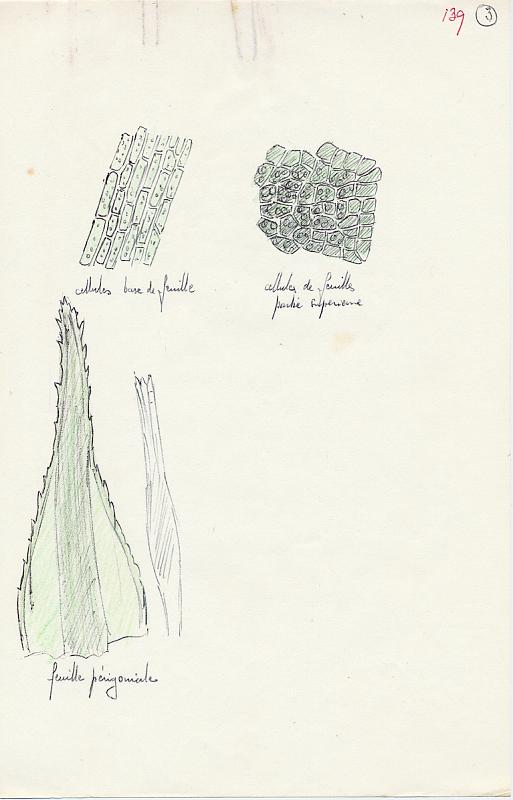 139 3
cellules base de feuille
cellules de feuilles
partie supérieure
feuille périgoniale